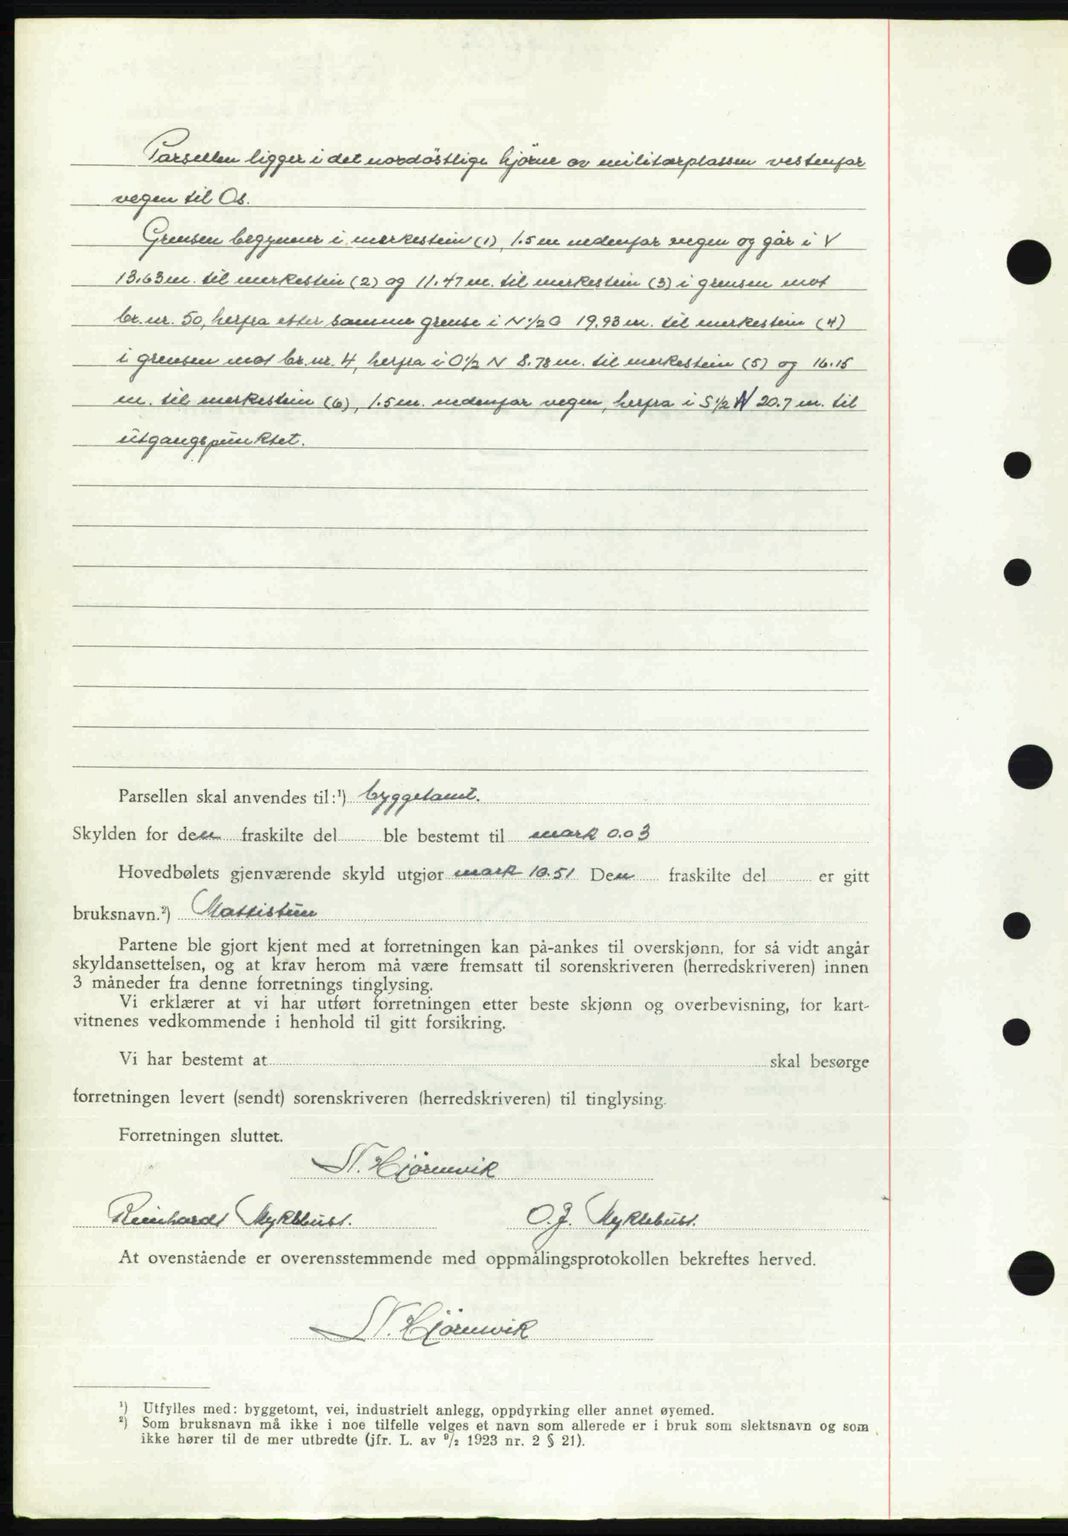 Parsellen ligger i det nordöstlige hjörne av militærplassen vestenfor
vegen til Os.
Grensen begynner i merkestein (1), 1.5 m nedenfor vegen og går i V
13.63 m. til merkestein (2) og 11.47 m. til merkestein (3) i grensen mot
br. nr. 50, herfra etter samme grense i N 1/2 O 19.93 m. til merkestein (4)
i grensen mot br. nr. 4, herfra i O 1/2 N 8.78 m. til merkestein (5) og 16.15
m. til merkestein (6), 1.5 m. nedenfor vegen, herfra i S 1/2 W 20.7 m. til
utgangspunktet.
Parsellen skal anvendes til:¹) byggetomt.
Skylden for den fraskilte del ble bestemt til mark 0.03
Hovedbølets gjenværende skyld utgjør mark 10.51 Den fraskilte del er gitt
bruksnavn.²) Mattistun
Partene ble gjort kjent med at forretningen kan på-ankes til overskjønn, for så vidt angår
skyldansettelsen, og at krav herom må være fremsatt til sorenskriveren (herredskriveren) innen
3 måneder fra denne forretnings tinglysing.
Vi erklærer at vi har utført forretningen etter beste skjønn og overbevisning, for kart-
vitnenes vedkommende i henhold til gitt forsikring.
Vi har bestemt at skal besørge
forretningen levert (sendt) sorenskriveren (herredskriveren) til tinglysing.
Forretningen sluttet.
N. Hjörnevik
Reinhardt Myklebust. O. J. Myklebust.
At ovenstående er overensstemmende med oppmålingsprotokollen bekreftes herved.
N. Hjörnevik
¹) Utfylles med: byggetomt, vei, industrielt anlegg, oppdyrking eller annet øyemed.
²) Som bruksnavn må ikke i noe tilfelle velges et navn som allerede er i bruk som slektsnavn og som
ikke hører til de mer utbredte (jfr. L. av ⁹/₂ 1923 nr. 2 § 21).